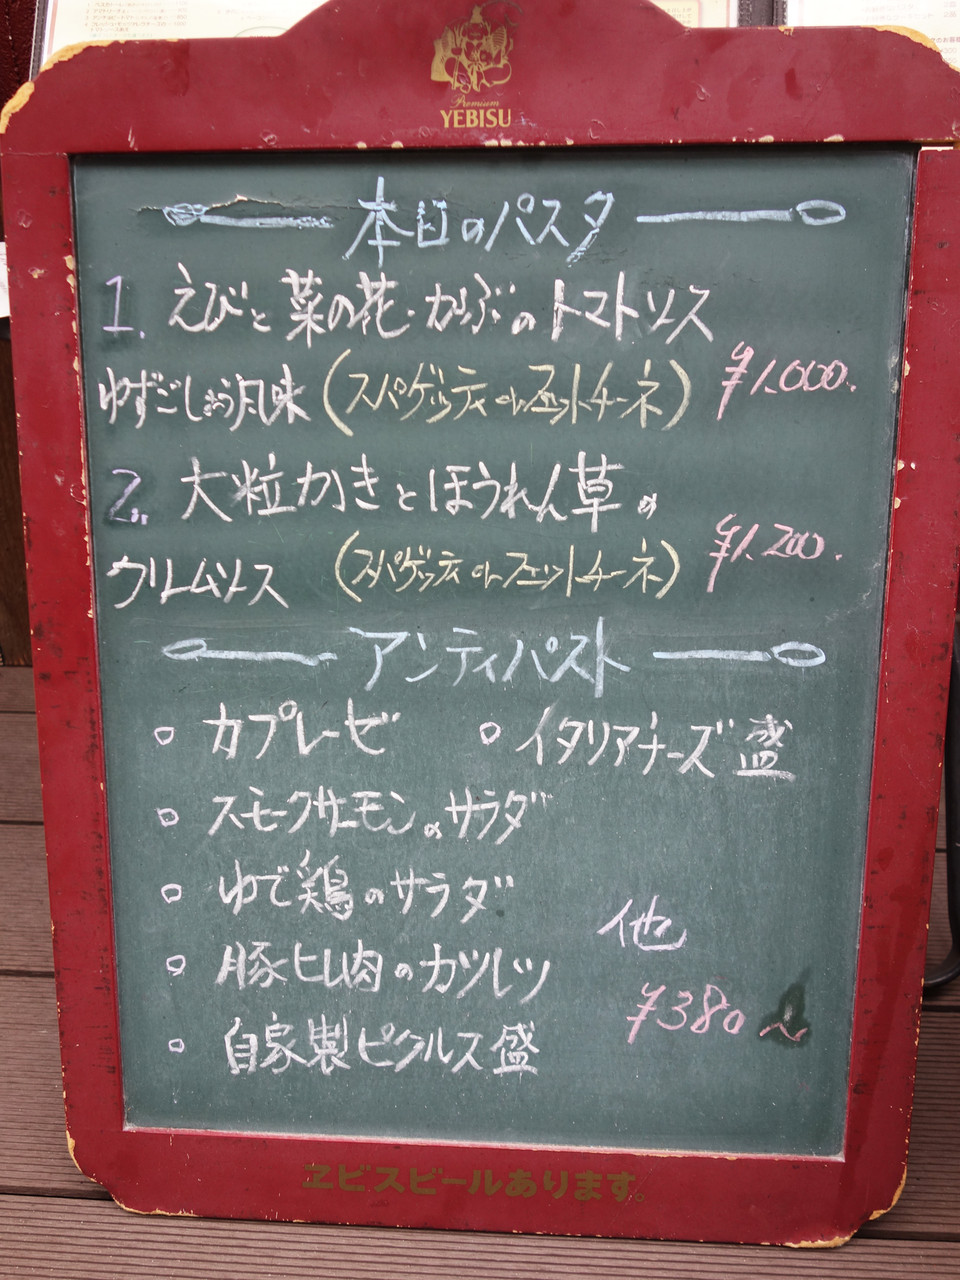 Premium
YEBISU
本日のパスタ
1. えびと菜の花・かぶのトマトソース
ゆずごしょう風味 (スパゲッティorフェットチーネ) ¥1,000.
2. 大粒かきとほうれん草の
クリームソース (スパゲッティorフェットチーネ) ¥1,200.
アンティパスト
○ カプレーゼ ○ イタリアチーズ盛
○ スモークサーモンのサラダ
○ ゆで鶏のサラダ
他
○ 豚ヒレ肉のカツレツ
¥380〜
○ 自家製ピクルス盛
ヱビスビールあります。